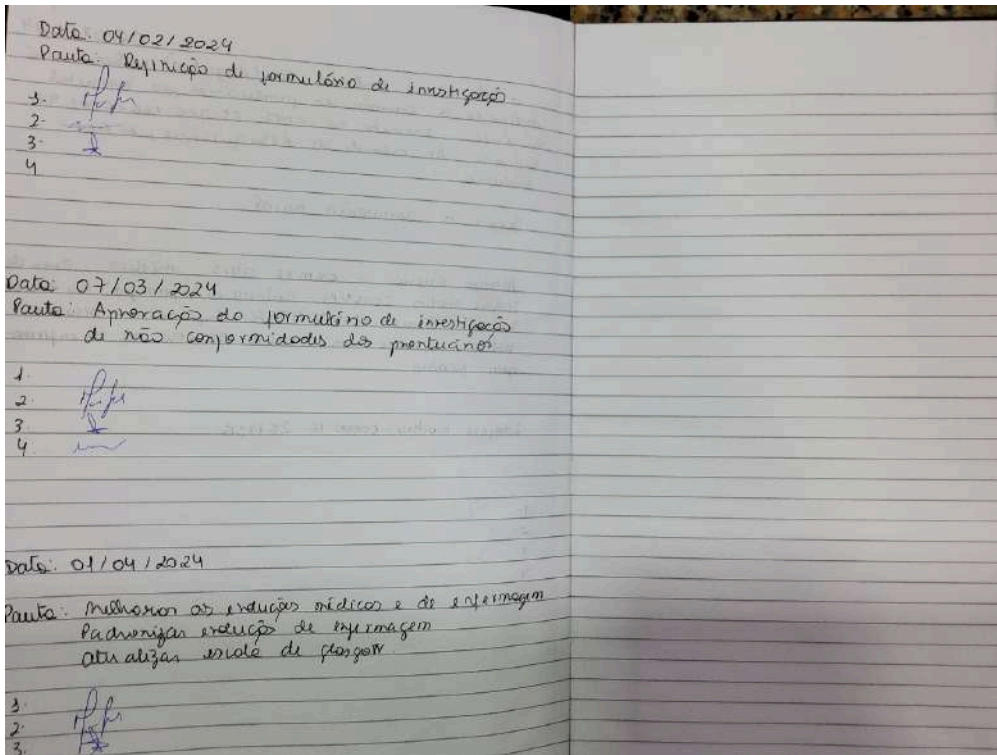 Data: 04/02/2024
Pauta: Definição de formulário de investigação
1.
2.
3.
4
Data: 07/03/2024
Pauta: Aprovação do formulário de investigação
de não conformidades dos prontuários
1.
2.
3.
4
Data: 01/04/2024
Pauta: Melhorar as evoluções médicas e de enfermagem
Padronizar evolução de enfermagem
atualizar escala de glasgow
1.
2.
3.